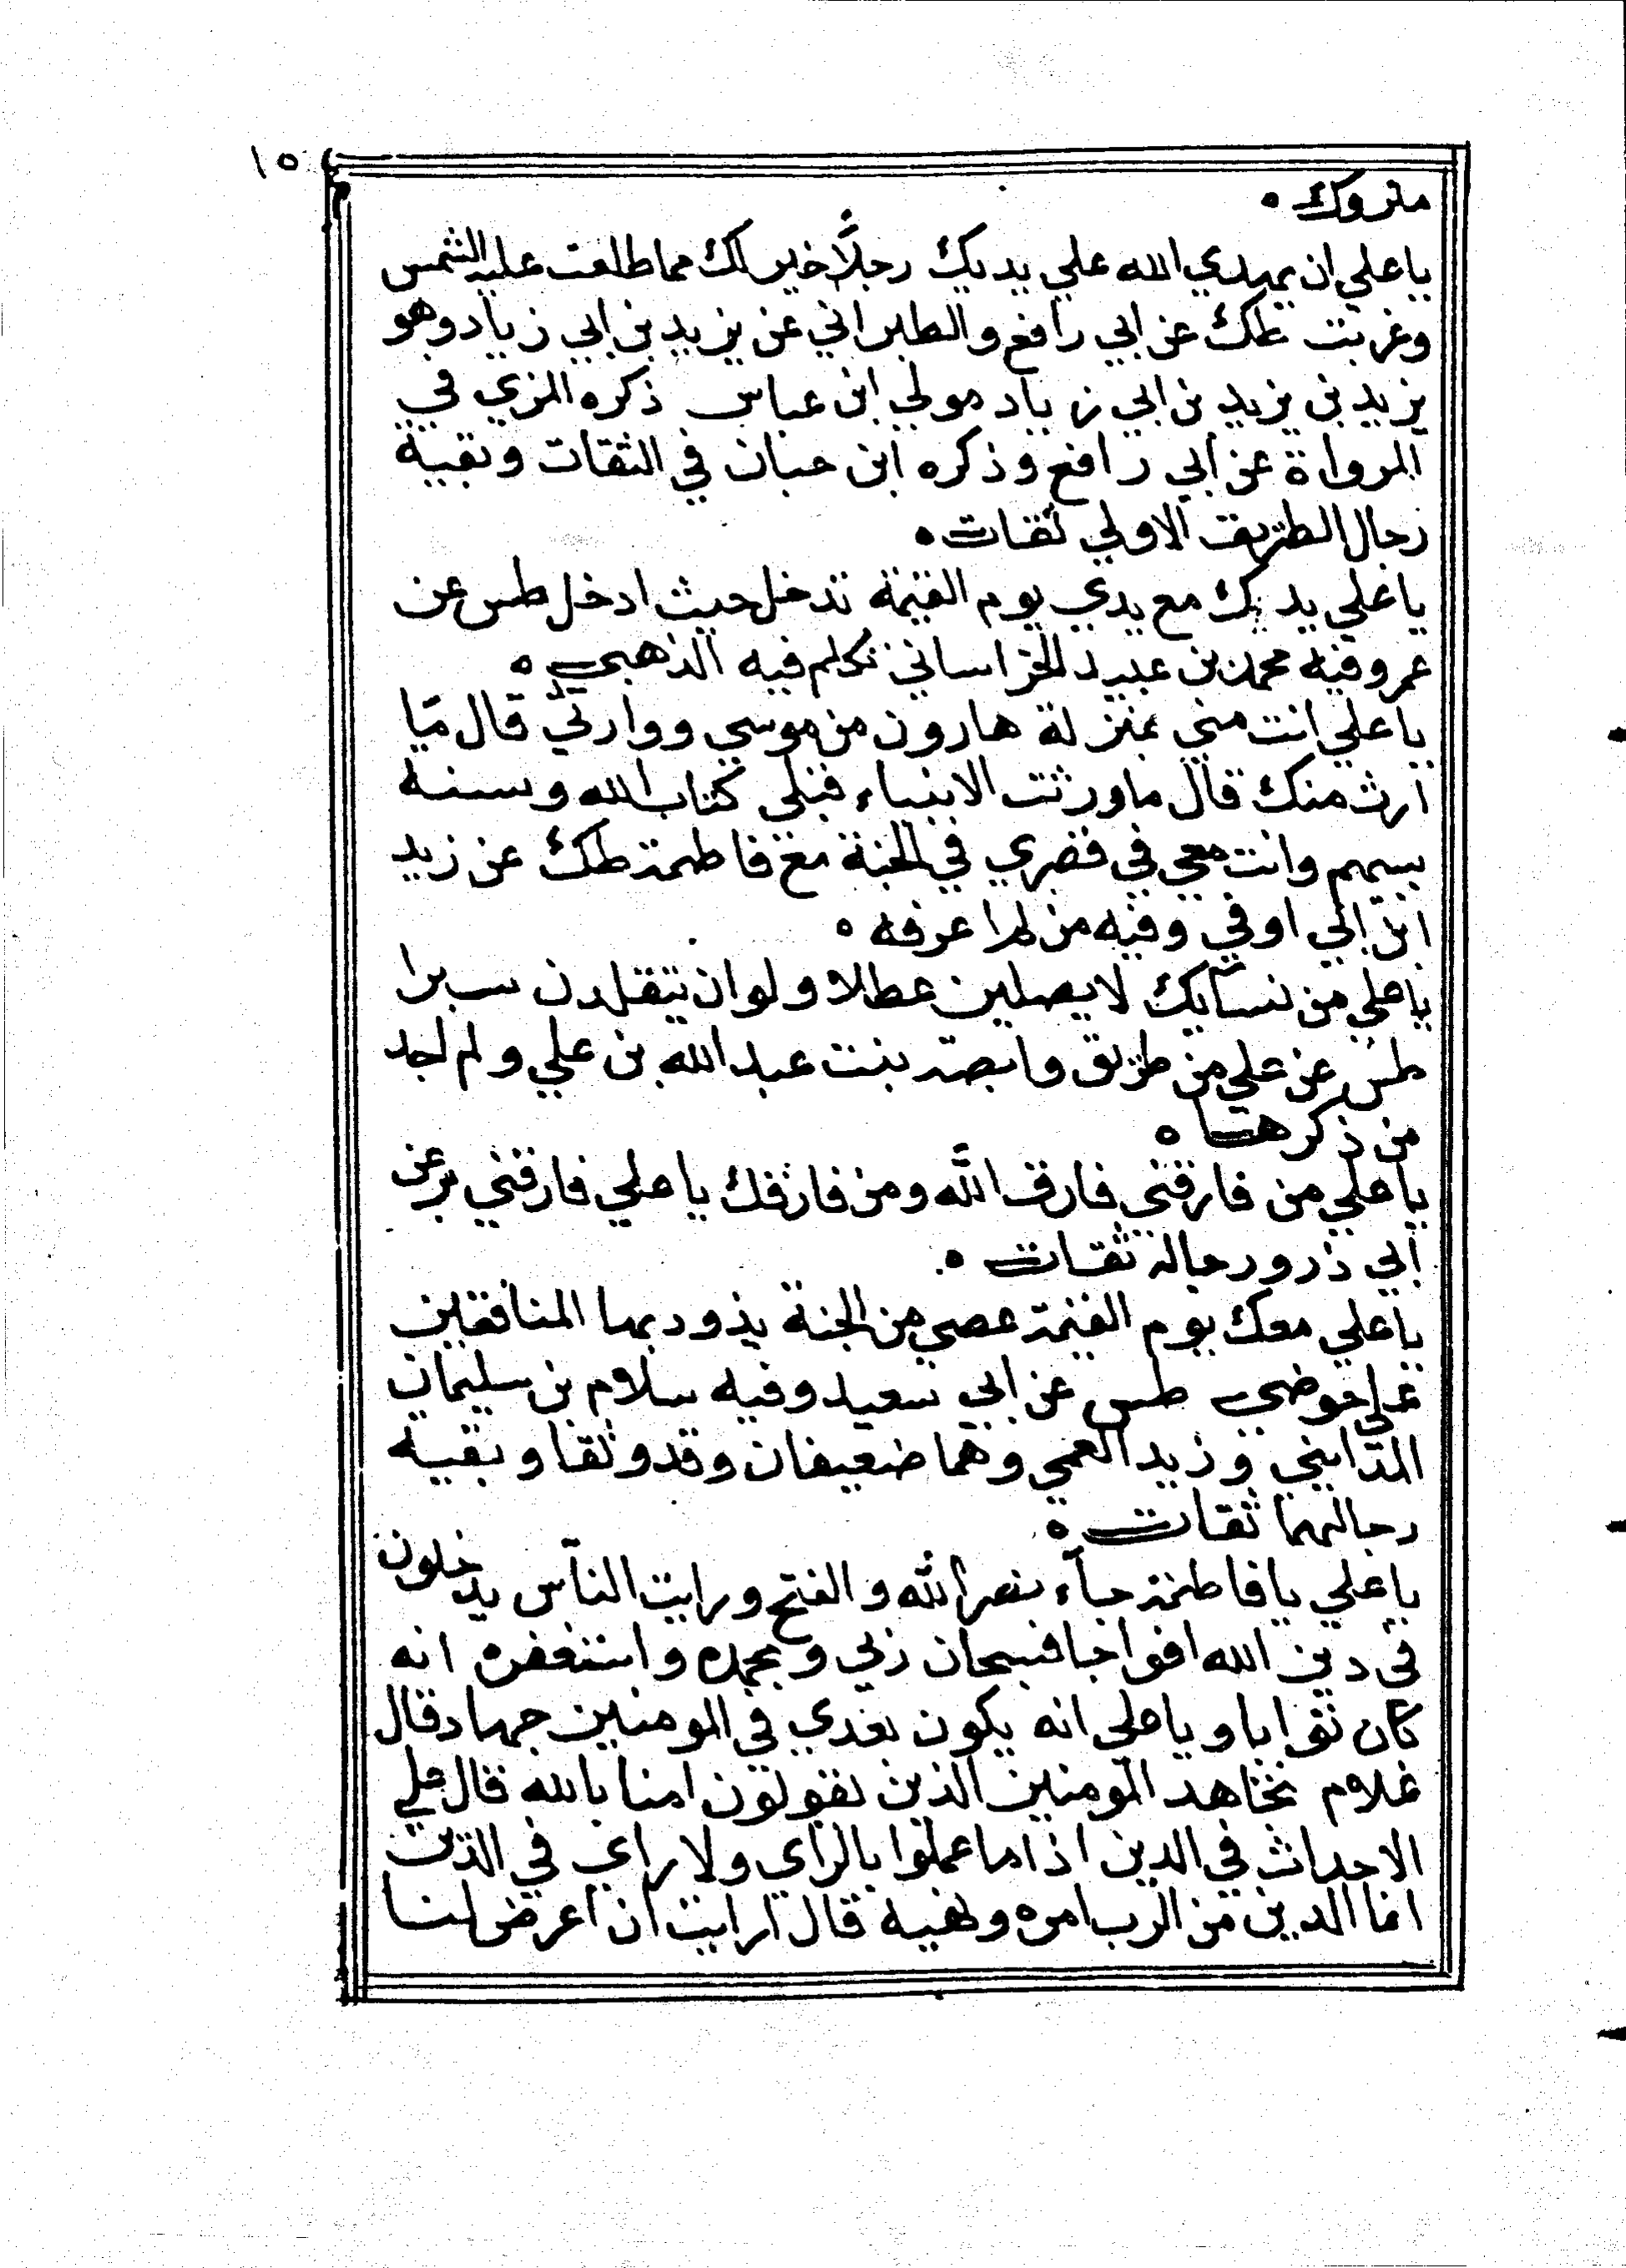 ١٥
متروك ه
يا علي ان يهدي الله علي يديك رجلًا خير لك مما طلعت عليه الشمس
وغربت طك عن ابي رافع والطبراني عن يزيد بن ابي زياد وهو
يزيد بن يزيد بن ابي زياد مولي ابن عباس ذكره المزي في
الرواة عن ابي رافع وذكره ابن حبان في الثقات وبقية
رجال الطريق الاولي ثقات ه
يا علي يديك مع يدي يوم القيمة تدخل حيث ادخل طس عن
عمر وفيه محمد بن عبيد الخراساني تكلم فيه الذهبي ه
يا علي انت مني بمنزلة هارون من موسي ووارثي قال ما
ارث منك قال ما ورثت الانبياء قبلي كتاب الله وسنة
نبيهم وانت معي في قصري في الجنة مع فاطمة طك عن زيد
ابن ابي اوفي وفيه من لم اعرفه ه
يا علي من نسآيك لا يصلين عطلا ولو ان يتقلدن سيرا
طس عن علي من طريق بنت عبد الله بن علي ولم اجد
من ذكرها ه
يا علي من فارقني فارق الله ومن فارقك يا علي فارقني بر عن
ابي ذر ورجاله ثقات ه
يا علي معك يوم القيمة عصي من الجنة يذود بها المنافقين
علي حوضي طس عن ابي سعيد وفيه سلام بن سليمان
المدايني وزيد العمي وهما ضعيفان وقد وثقا وبقية
رجالهما ثقات ه
يا علي يا فاطمة جآء نصر الله والفتح ورايت الناس يدخلون
في دين الله افواجا فسبحان ربي وبحمده واستغفره انه
كان توابا ويا علي انه يكون بعدي في المومنين جهاد قال
غلام نجاهد المومنين الذين يقولون امنا بالله قال علي
الاحداث في الدين اذا ما عملوا بالراي ولا راي في الدين
انما الدين من الرب امره ونهيه قال ارايت ان اعرض لنا